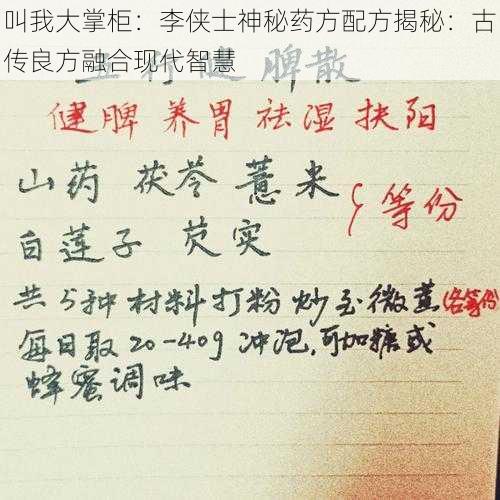 叫我大掌柜：李侠士神秘药方配方揭秘：古
传良方融合现代智慧
五行健脾散
健脾养胃祛湿扶阳
山药 茯苓 薏米
白莲子 芡实
等份
共5种材料打粉炒至微黄(各等份)
每日取20-40g冲泡,可加糖或
蜂蜜调味